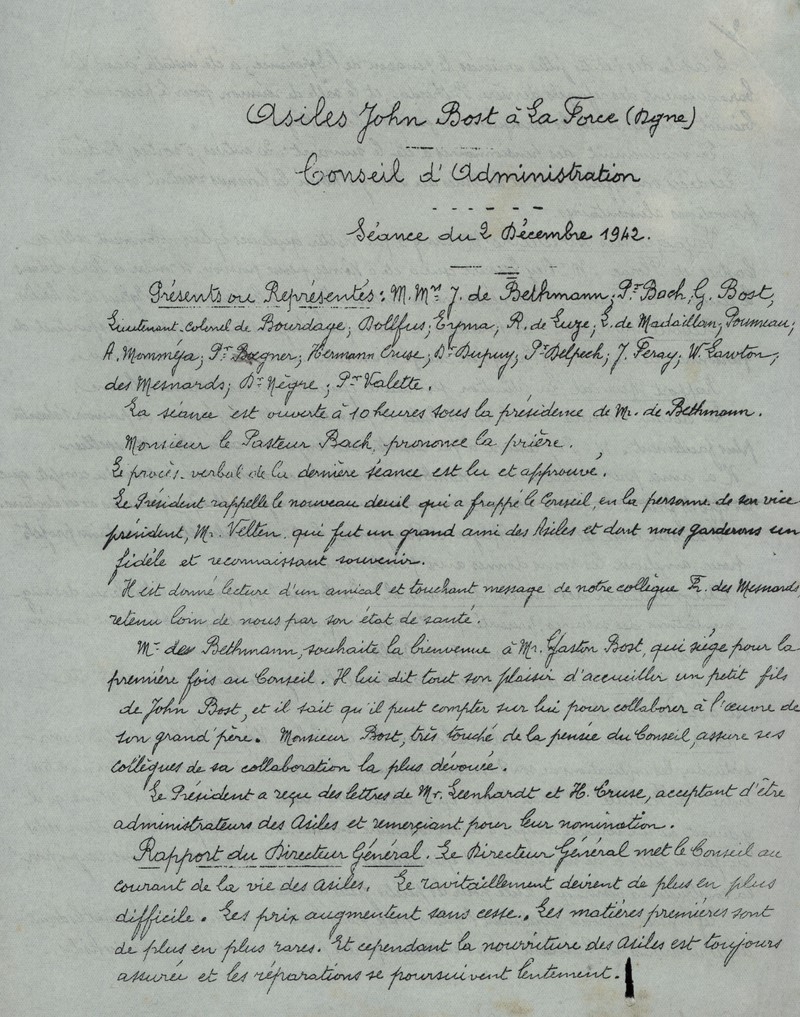 Asiles John Bost à La Force (Dgne)
Conseil d'Administration
Séance du 2 Décembre 1942.
Présents ou Représentés: M.Mrs J. de Bethmann; Pr Bach, G. Bost,
Lieutenant-colonel de Bourdage; Dollfus; Eyma; R. de Luze; L. de Madaillan; Poumeau;
A. Momméja; Pr Bœgner; Hermann Cruse; Dr Dupuy; Pr Delpech; J. Feray; W. Lawton;
des Mesnards; Dr Nègre; Pr Valette.
La séance est ouverte à 10 heures sous la présidence de Mr. de Bethmann.
Monsieur le Pasteur Bach, prononce la prière.
Le procès-verbal de la dernière séance est lu et approuvé.
Le Président rappelle le nouveau deuil qui a frappé le Conseil, en la personne de son vice
président, Mr. Velten qui fut un grand ami des Asiles et dont nous garderons un
fidèle et reconnaissant souvenir.
Il est donné lecture d'un amical et touchant message de notre collègue Fr. des Mesnards
retenu loin de nous par son état de santé.
Mr de Bethmann, souhaite la bienvenue à Mr. Gaston Bost, qui siège pour la
première fois au Conseil. Il lui dit tout son plaisir d'accueillir un petit fils
de John Bost, et il sait qu'il peut compter sur lui pour collaborer à l'œuvre de
son grand'père. Monsieur Bost, très touché de la pensée du Conseil, assure ses
collègues de sa collaboration la plus dévouée.
Le Président a reçu des lettres de Mr. Leenhardt et H. Cruse, acceptant d'être
administrateurs des Asiles et remerciant pour leur nomination.
Rapport du Directeur Général. Le Directeur Général met le Conseil au
courant de la vie des Asiles. Le ravitaillement devient de plus en plus
difficile. Les prix augmentent sans cesse. Les matières premières sont
de plus en plus rares. Et cependant la nourriture des Asiles est toujours
assurée et les réparations se poursuivent lentement.